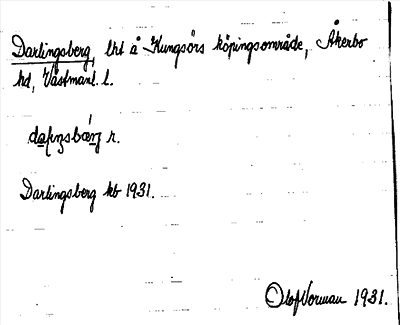 Darlingsberg, lht å Kungsörs köpingsområde, Åkerbo
hd, Västmanl. l.
r.
Darlingsberg kb 1931.
Olof Norman 1931.